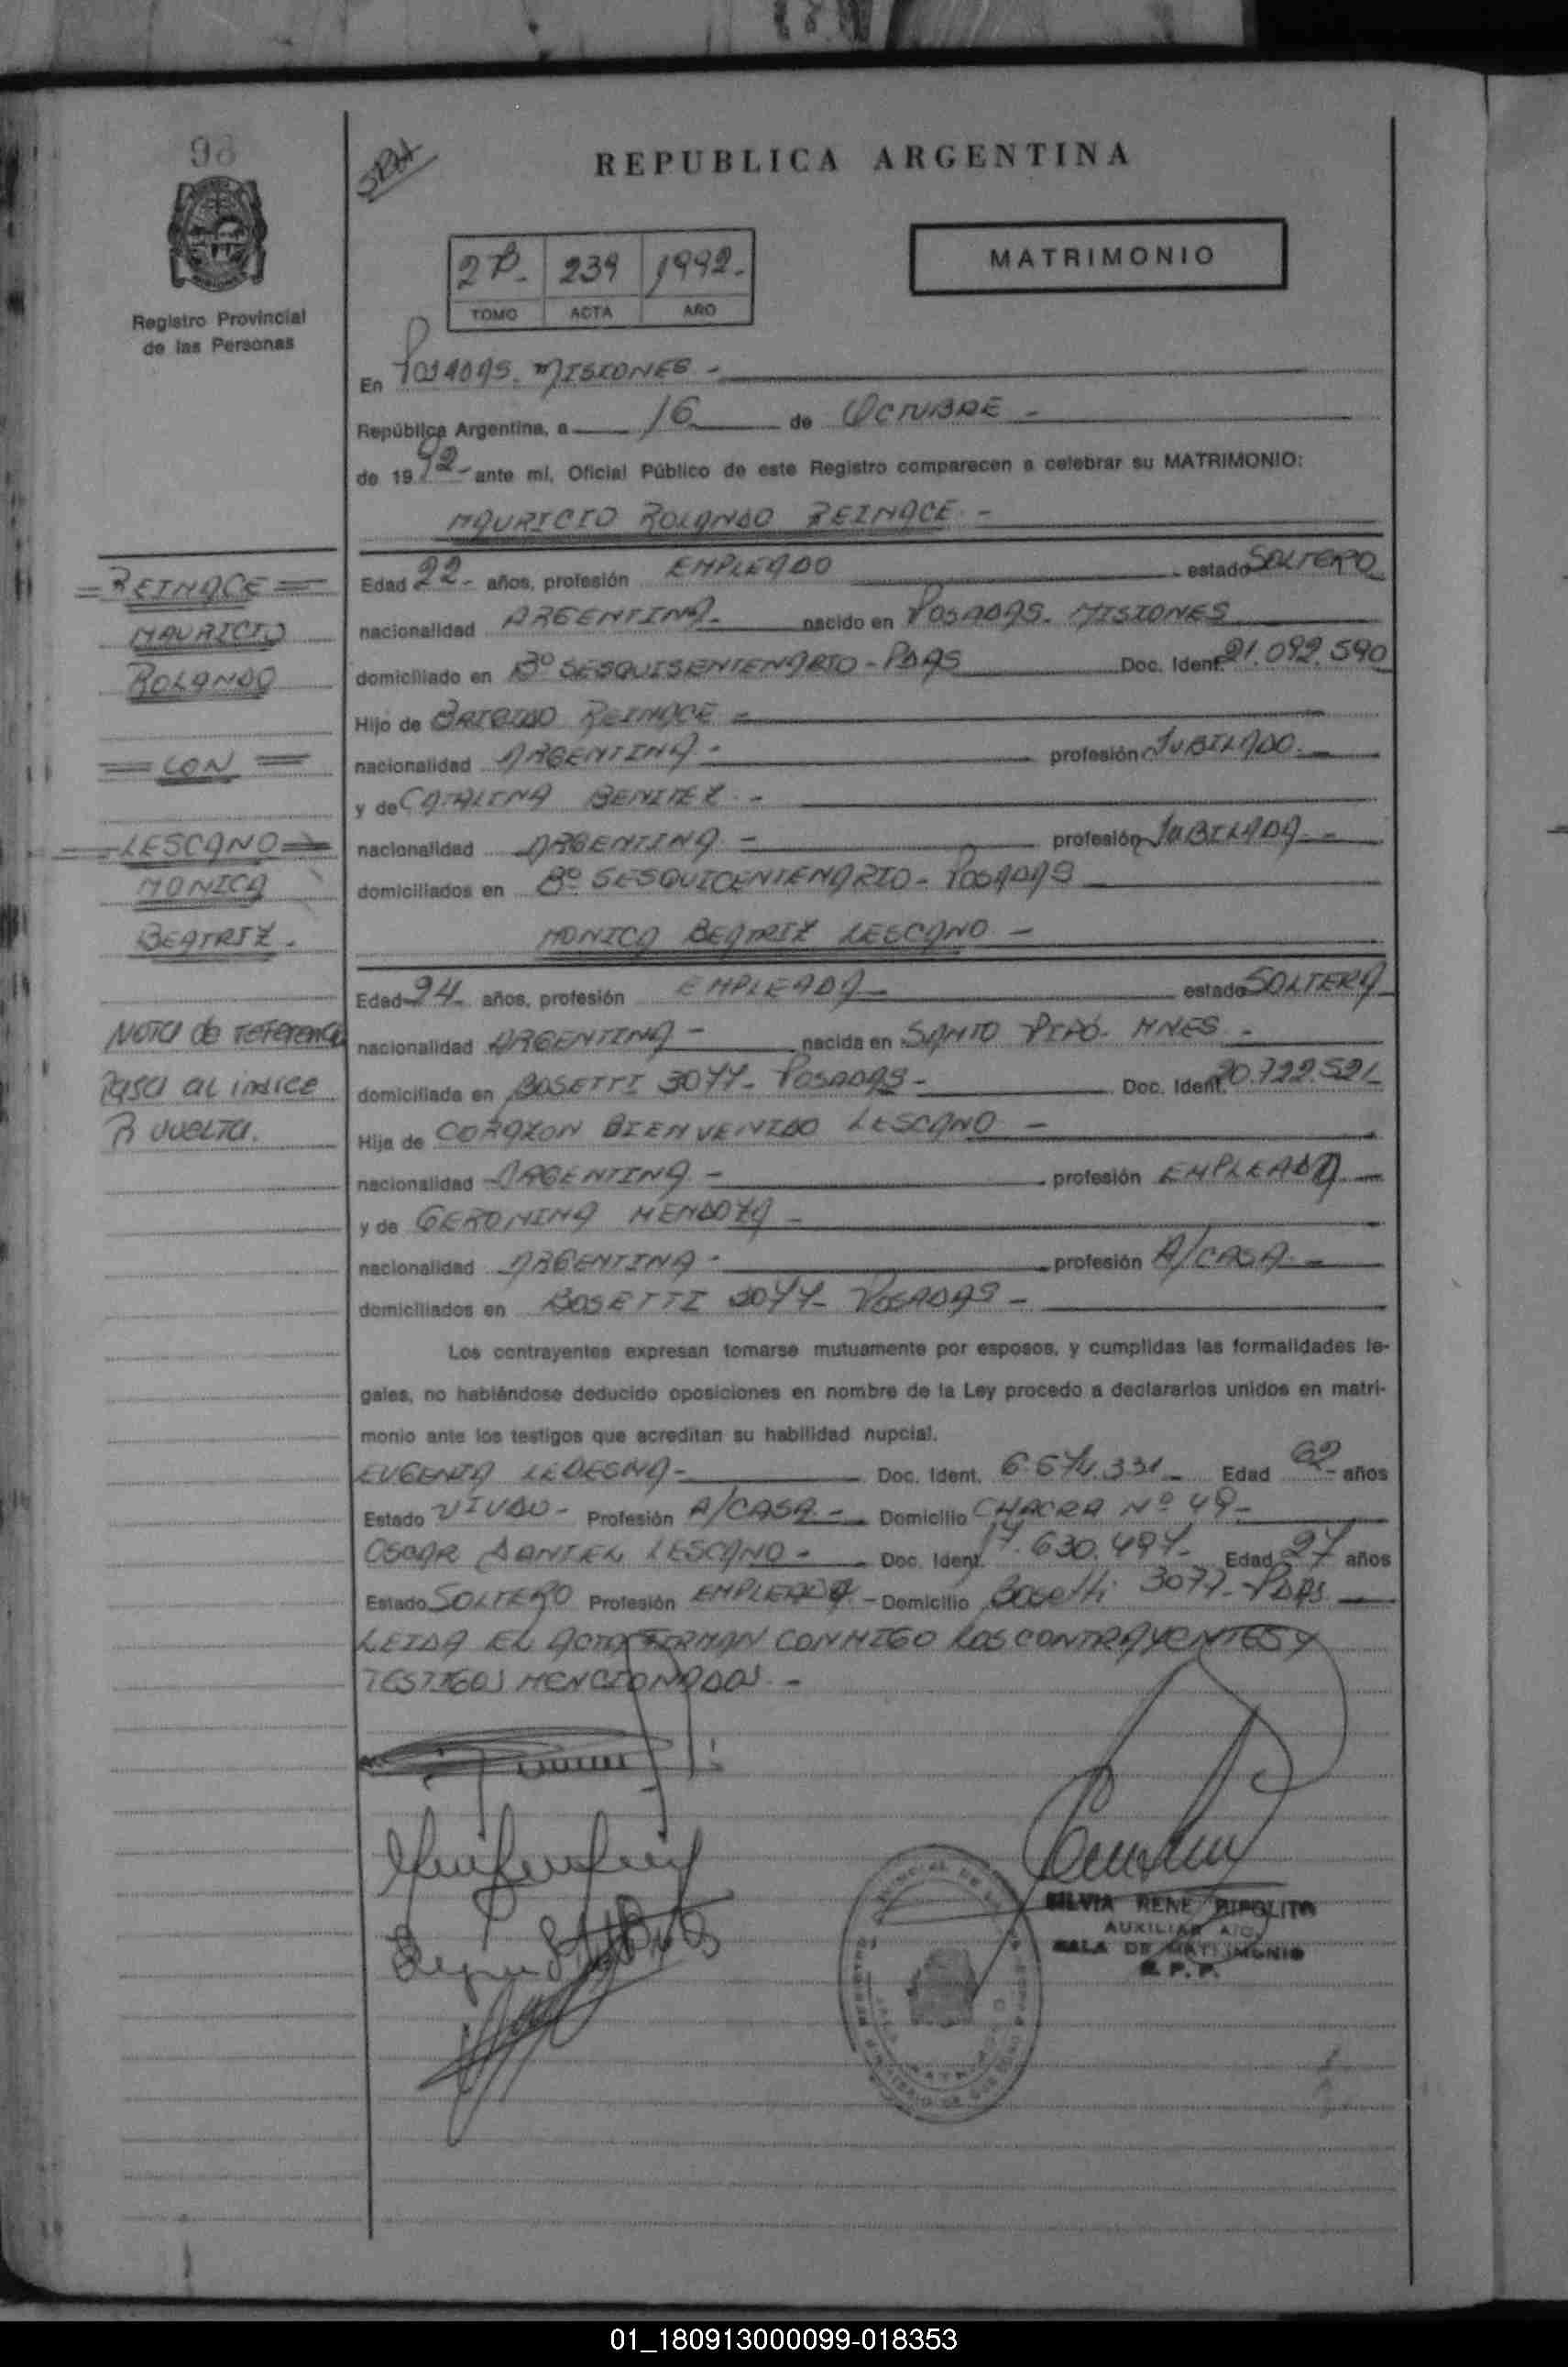 98
REPUBLICA ARGENTINA
MATRIMONIO
239 1992.-
TOMO ACTA AÑO
Registro Provincial
de las Personas
En POSADAS. MISIONES -
República Argentina, a 16 de OCTUBRE -
de 1992- ante mi, Oficial Público de este Registro comparecen a celebrar su MATRIMONIO:
MAURICIO ROLANDO REINACE -
=REINACE=
MAURICIO
ROLANDO
=CON=
=LESCANO=
MONICA
BEATRIZ.
NOTA de referencia
Pasa al indice
R vuelta.
Edad 22- años, profesión EMPLEADO estado SOLTERO
nacionalidad ARGENTINA- nacido en POSADAS- MISIONES
domiciliado en Bº SESQUISENTENARIO - PDAS Doc. Ident. 21.092.590
Hijo de BRIGIDO REINACE -
nacionalidad ARGENTINA- profesión JUBILADO.-
y de CATALINA BENITEZ. -
nacionalidad ARGENTINA- profesión JUBILADA.-
domiciliados en Bº SESQUICENTENARIO- POSADAS
MONICA BEATRIZ LESCANO -
Edad 24- años, profesión EMPLEADA- estado SOLTERA
nacionalidad ARGENTINA- nacida en SANTO PIPÓ- MNES -
domiciliada en BOSETTI 3077- POSADAS- Doc. Ident. 20.722.521
Hija de CORAZON BIENVENIDO LESCANO -
nacionalidad ARGENTINA- profesión EMPLEADO-
y de GERONIMA MENDOZA -
nacionalidad ARGENTINA- profesión A/CASA.-
domiciliados en BOSETTI 3077- POSADAS -
Los contrayentes expresan tomarse mutuamente por esposos, y cumplidas las formalidades le-
gales, no habiéndose deducido oposiciones en nombre de la Ley procedo a declararlos unidos en matri-
monio ante los testigos que acreditan su habilidad nupcial.
EUGENIA LEDESMA- Doc. Ident. 6.674.331- Edad 62- años
Estado VIUDO- Profesión A/CASA.- Domicilio CHACRA Nº 49-
OSCAR DANIEL LESCANO- Doc. Ident. 17.630.497- Edad 27 años
Estado SOLTERO Profesión EMPLEADO - Domicilio Bosetti 3077-PDAS
LEIDA EL ACTA FIRMAN CONMIGO LOS CONTRAYENTES Y
TESTIGOS MENCIONADOS. -
SILVIA RENE HIPOLITO
AUXILIAR
SALA DE MATRIMONIO
R. P. P.
01_180913000099-018353